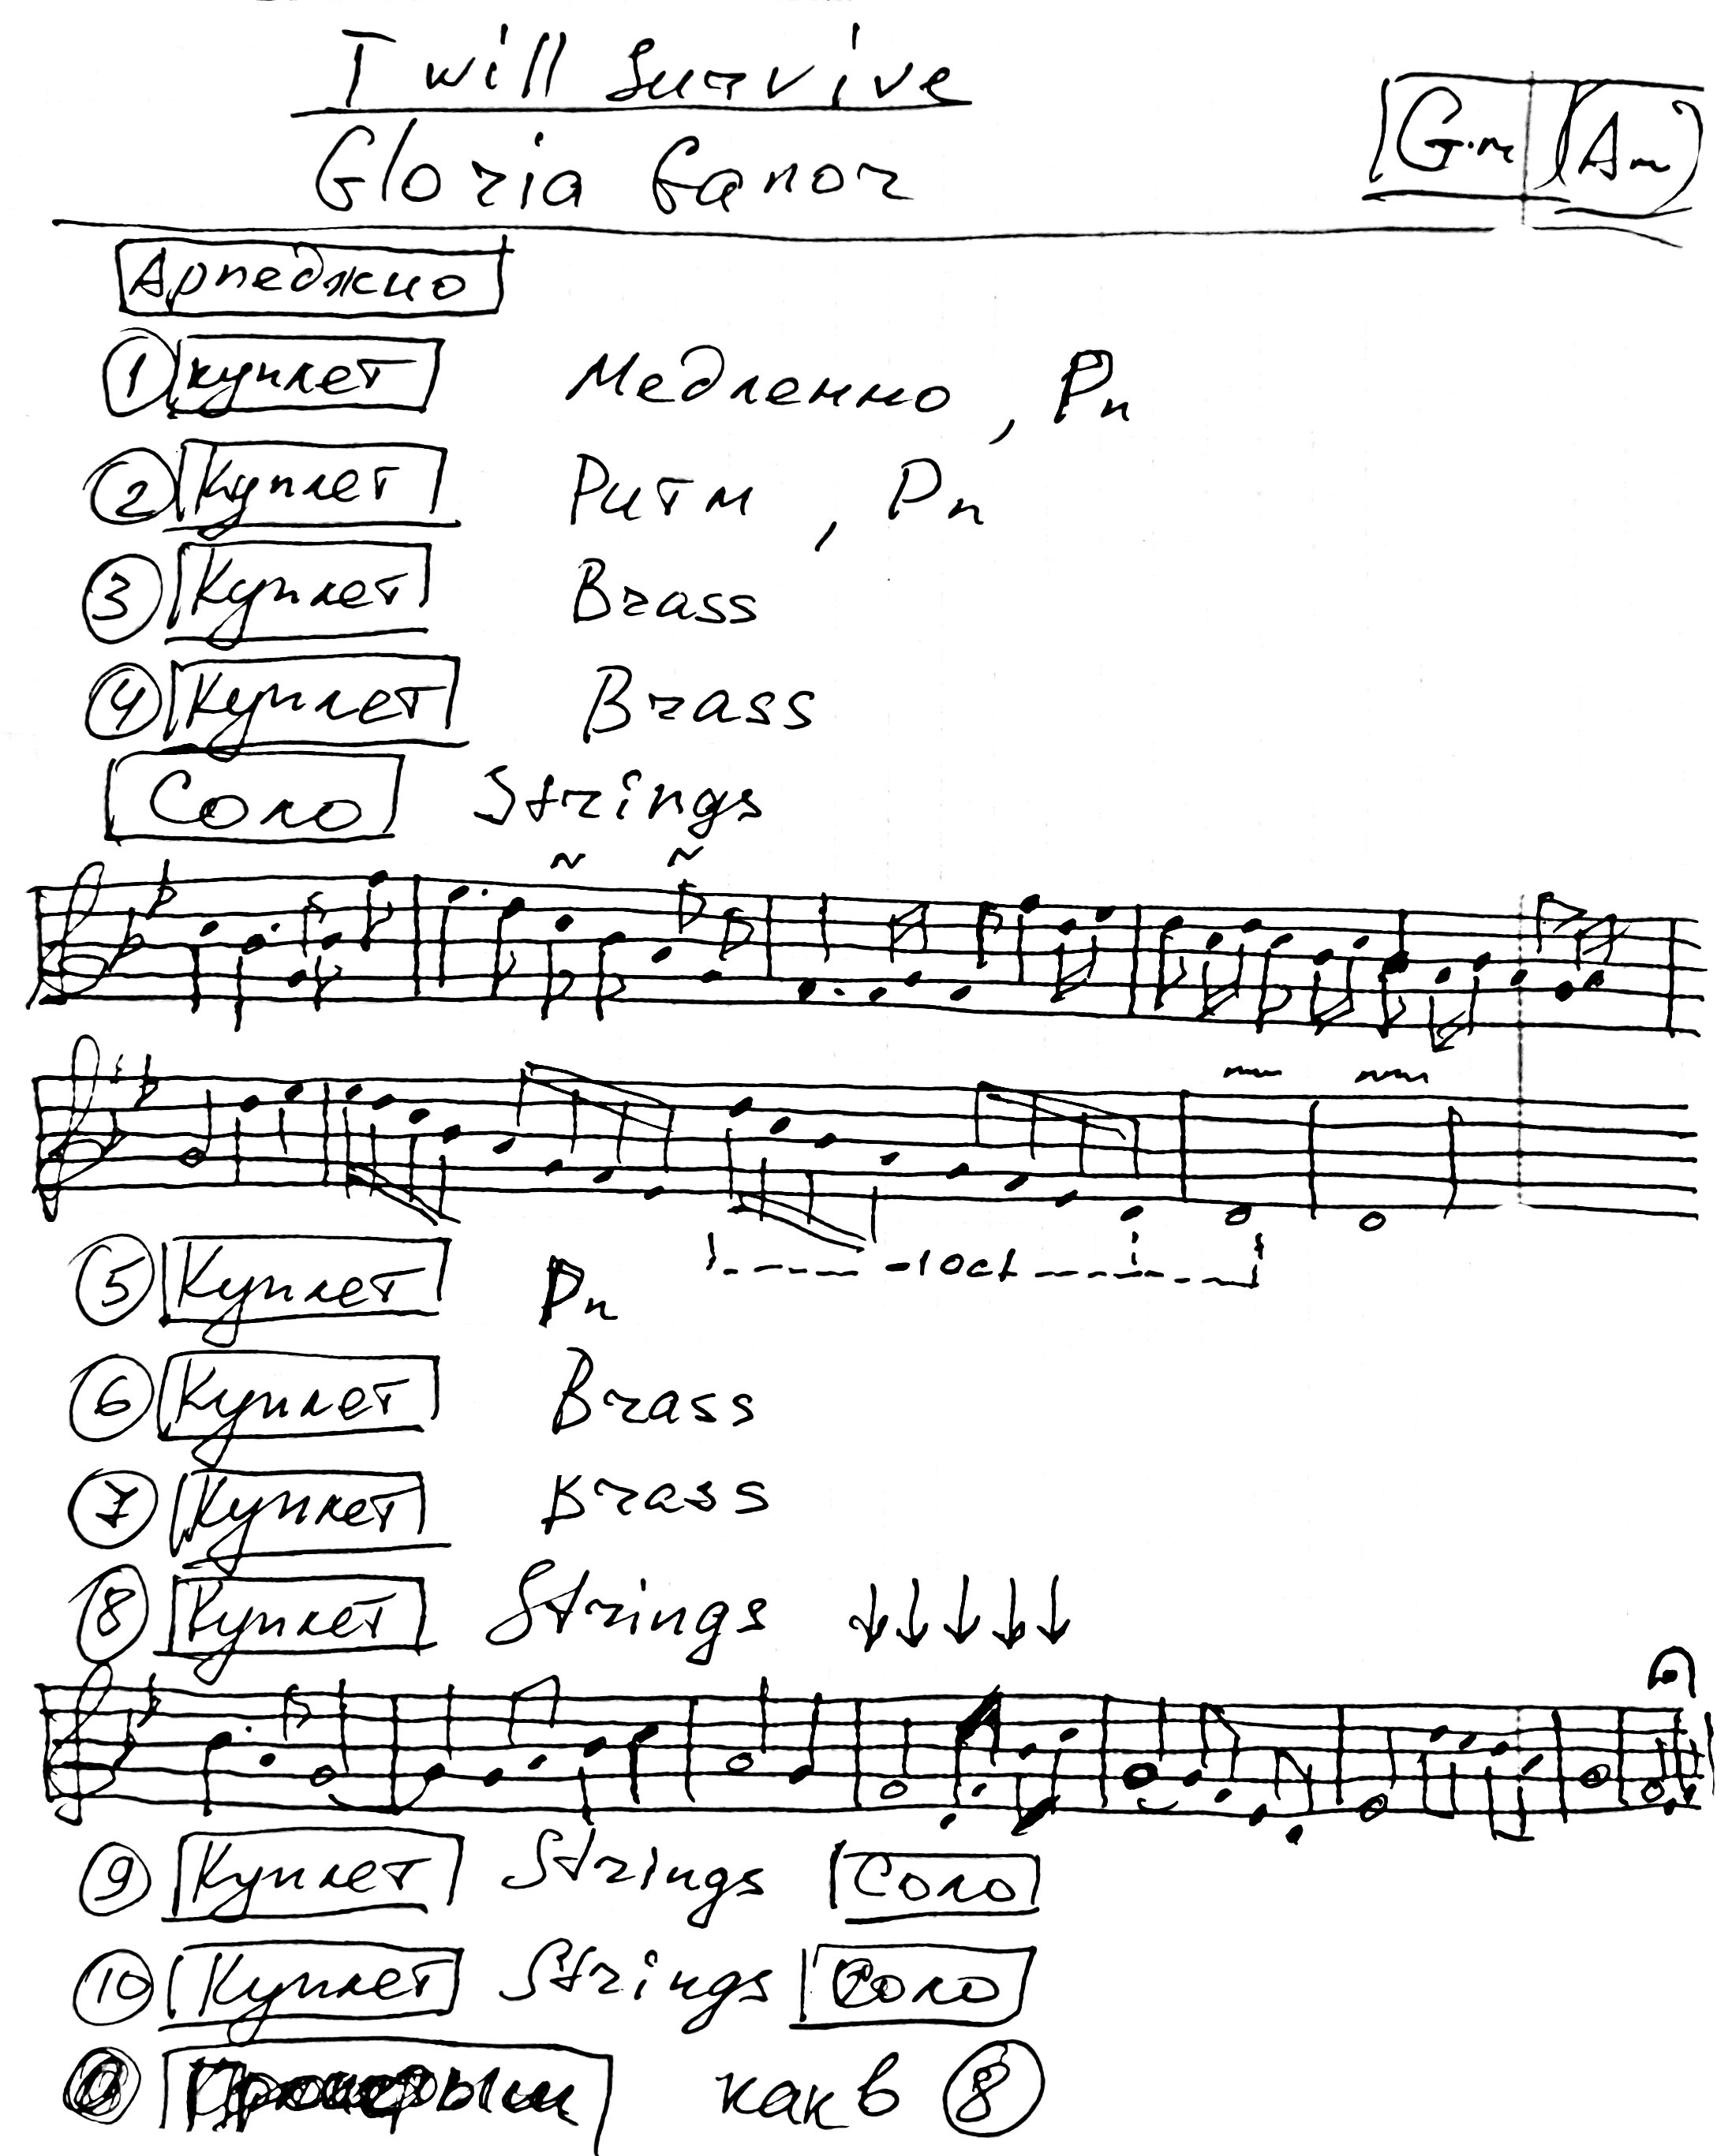 I will Survive
Gloria Ganor
Gm (Am)
Арпеджио
1 куплет Медленно, Pn
2 Куплет Ритм, Pn
3 Куплет Brass
4 Куплет Brass
Соло Strings
-1 oct
5 Куплет Pn
6 Куплет Brass
7 Куплет Brass
8 Куплет Strings ↓↓↓↓↓
9 Куплет Strings Соло
10 Куплет Strings Соло
Проигрыш как в 8